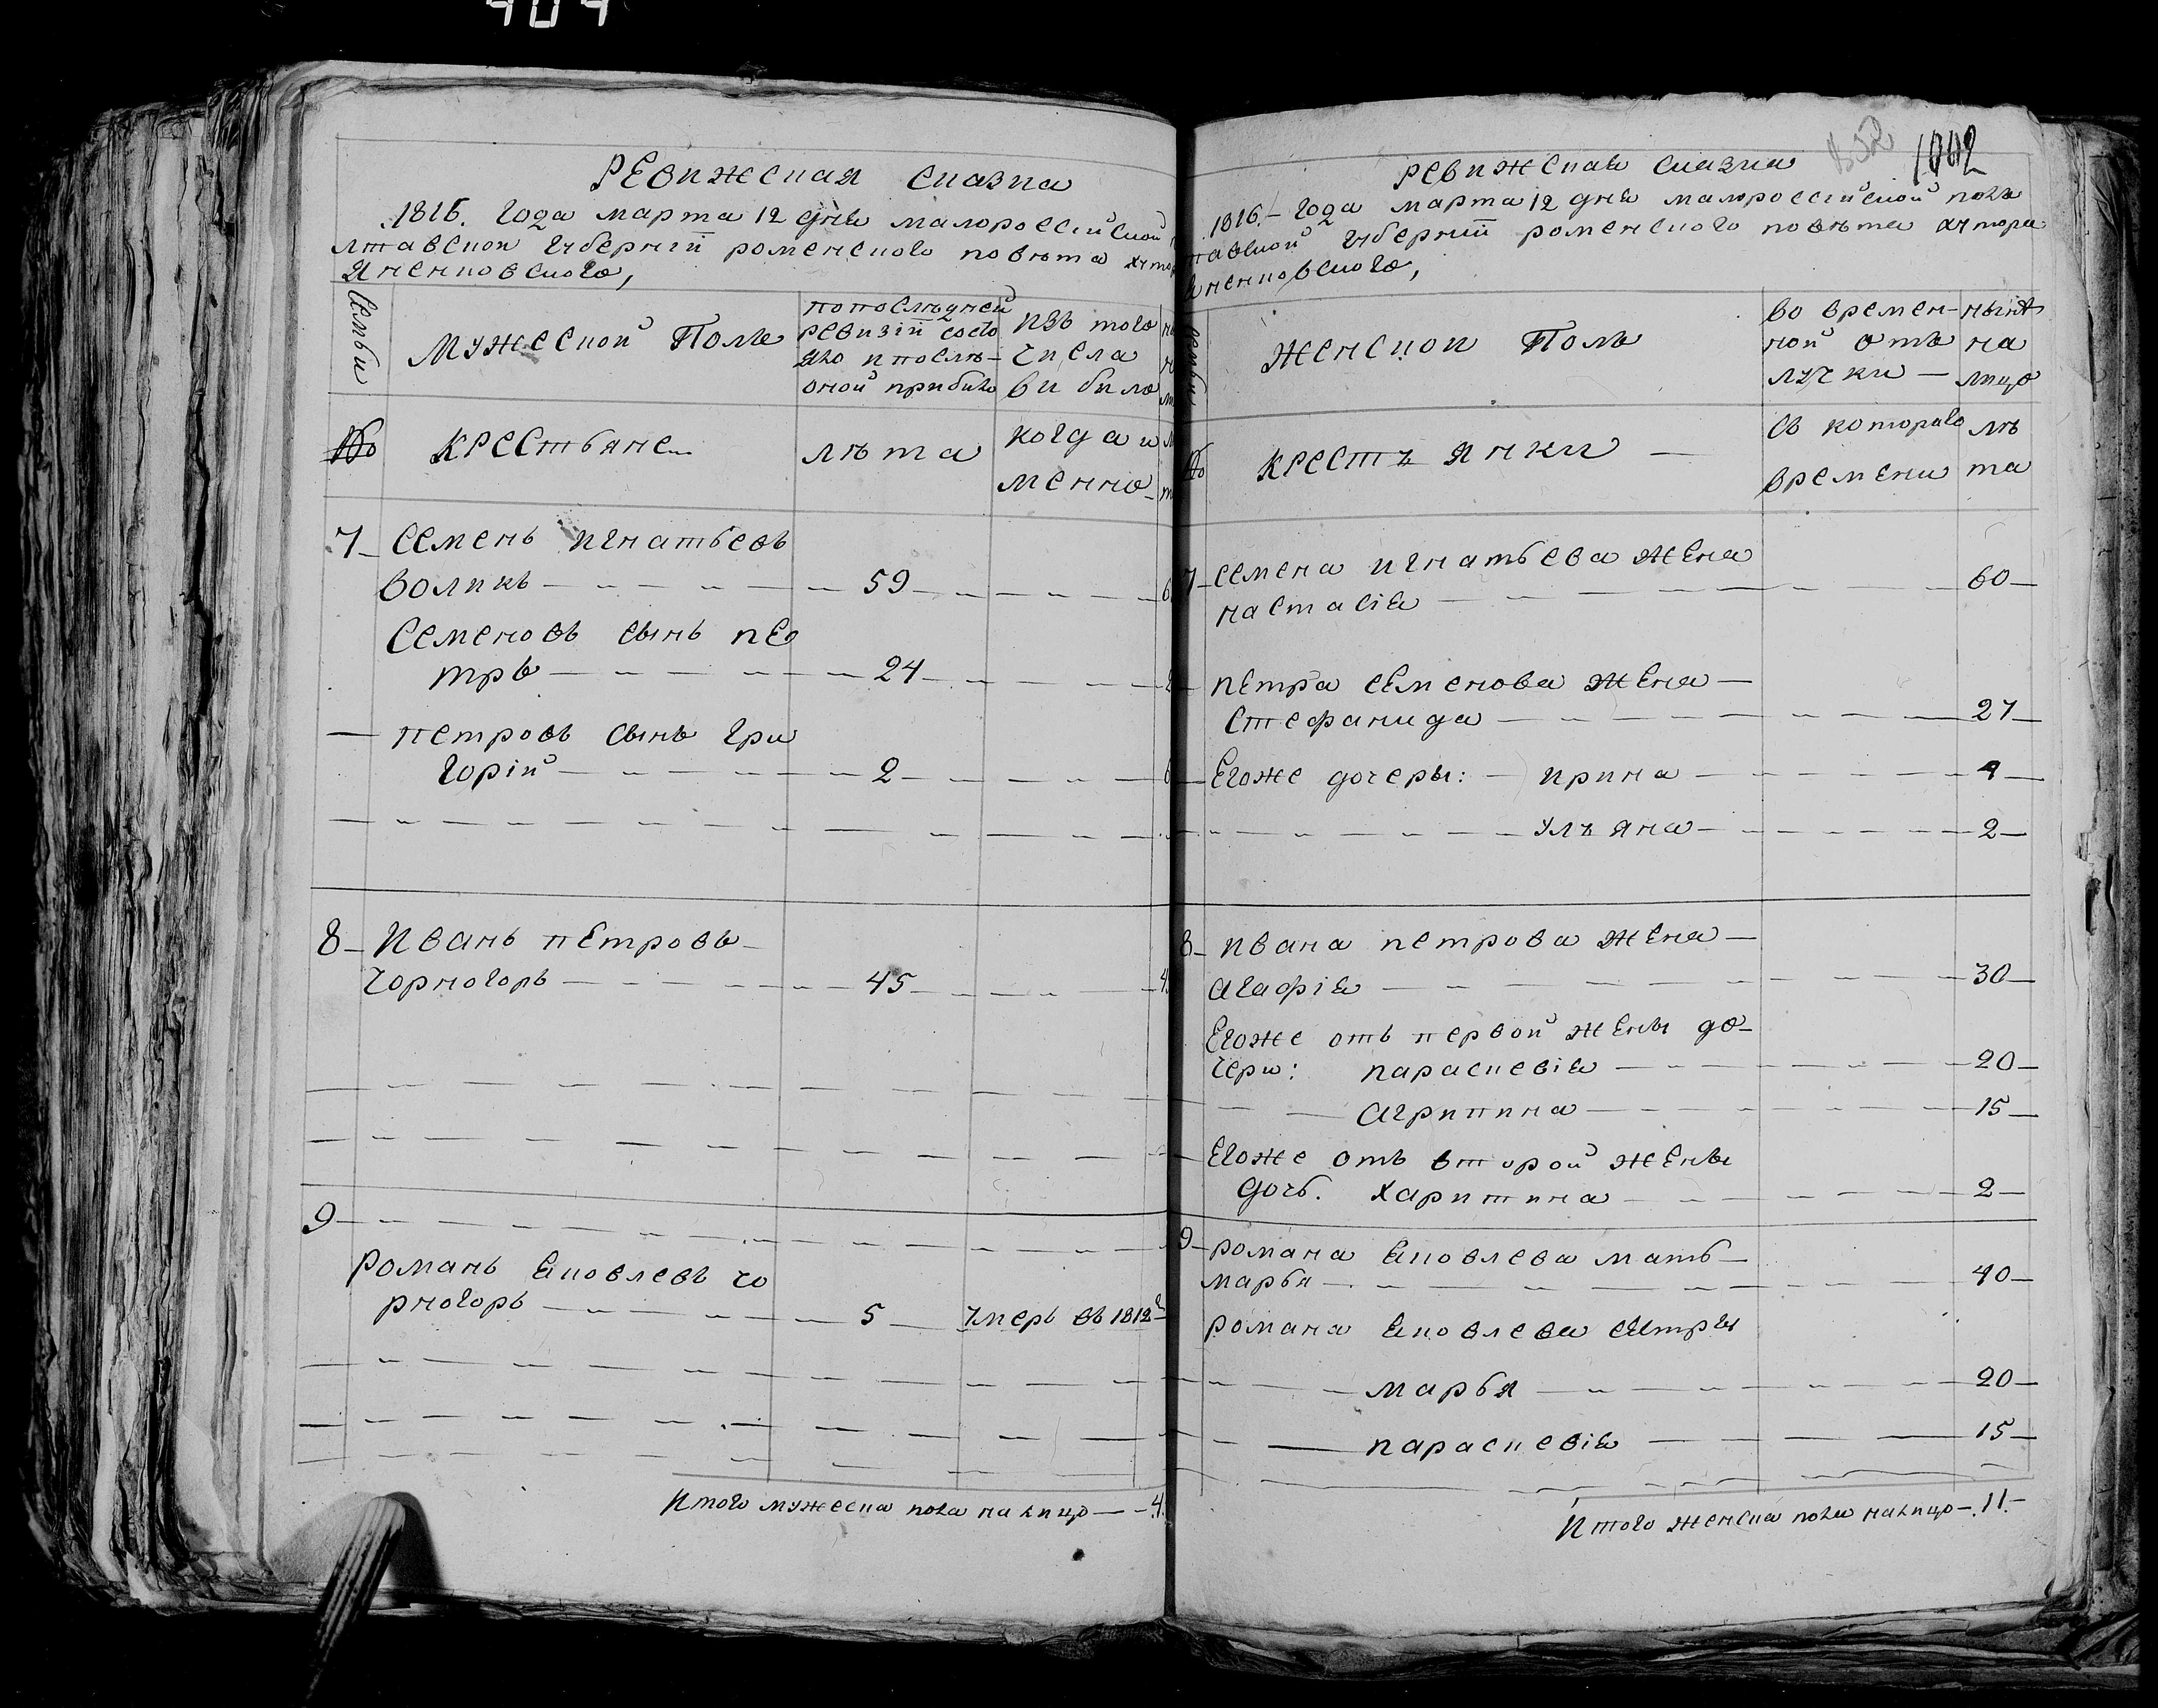 404
Ревижская сказка
1816. Года марта 12 дня малороссійской
лтавской губерніи роменского повѣта хутор
Яненковского,
Семьи
Мужеской Полъ
попослѣдней
ревизіи состо
яло и послѣ-
оной прибыло
изъ того
числа
вибыло
№
крестьяне
лѣта
когда и
менно
7 Семенъ игнатьевъ
воликъ 59
Семеновъ сынъ пе
тръ 24
петровъ сынъ гри
горій 2
8 Иванъ петровъ
чорногоръ 45
9
Романъ яковлевъ чо
рногоръ 5 умеръ въ 1812
Итого мужеска пола налицо 4.
1002
ревижская сказка
1816 Года марта 12 дня малороссійской полъ
тавской губерніи роменского повѣта хутора
яненковского,
женской Полъ
во времен-
ной отъ
лучки
нынѣ
на
лицо
№
крестъянки
съ которого
времени
лѣ
та
7 семена игнатьева жена
настасія 60
петра семенова жена
стефанида 27
Егоже дочеры: ирина 4
улъяна 2
8 ивана петрова жена
агафія 30
Егоже отъ первой жены до-
чери: параскевія 20
агрипина 15
Егоже отъ второй жены
дочь. харитина 2
9 романа яковлева мать
марья 40
романа яковлева сестры
марья 20
параскевія 15
Итого женска пола налицо 11.